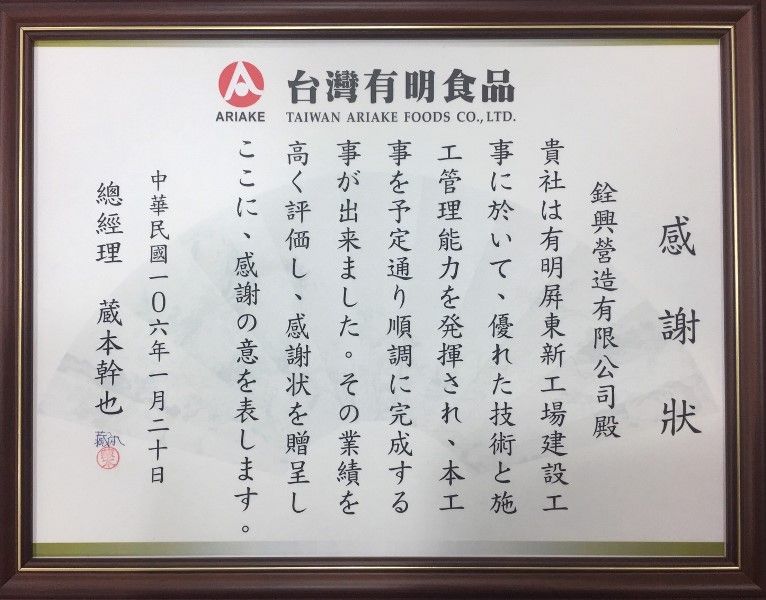 ARIAKE
台灣有明食品
TAIWAN ARIAKE FOODS CO., LTD.
感謝狀
銓興營造有限公司殿
貴社は有明屏東新工場建設工
事に於いて、優れた技術と施
工管理能力を発揮され、本工
事を予定通り順調に完成する
事が出来ました。その業績を
高く評価し、感謝状を贈呈し
ここに、感謝の意を表します。
中華民國一０六年一月二十日
總經理 蔵本幹也